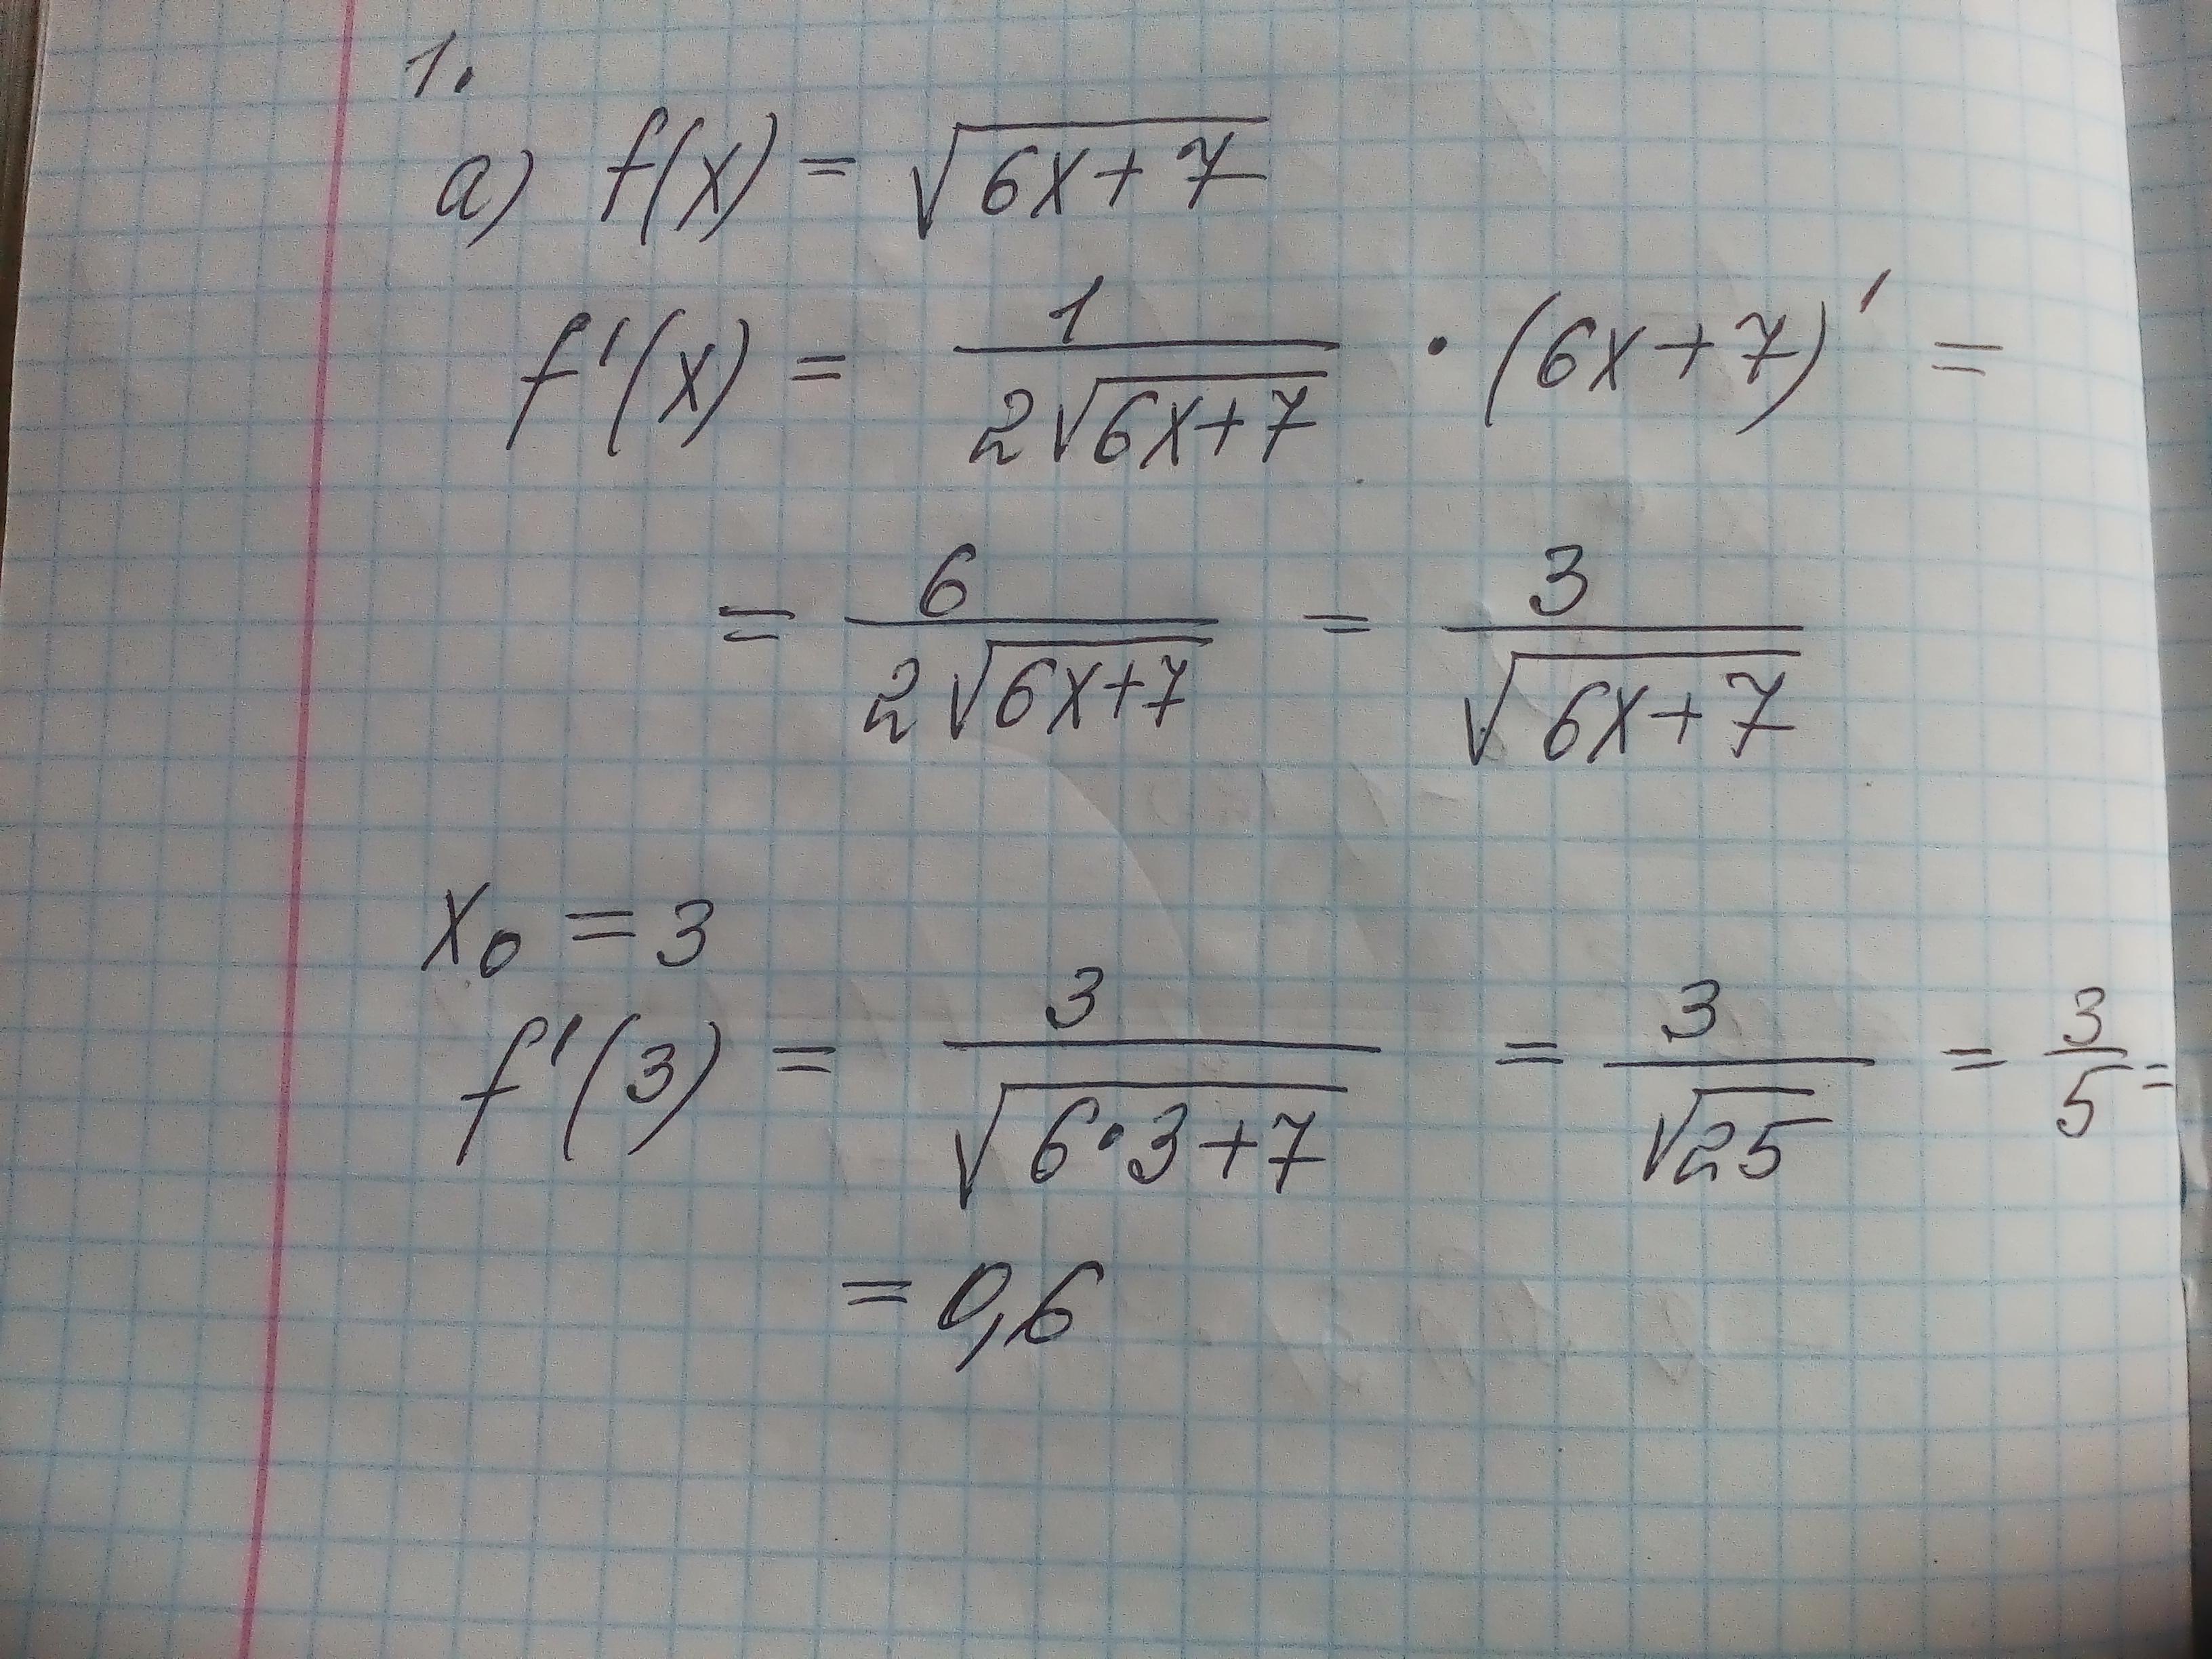 1.
a) f(x) = √(6x+7)
f'(x) = 1/(2√(6x+7)) · (6x+7)' =
= 6/(2√(6x+7)) = 3/√(6x+7)
x₀ = 3
f'(3) = 3/√(6·3+7) = 3/√25 = 3/5 =
= 0,6